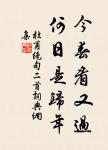 今春看又過
何日是歸年
杜甫絕句二首詞典網
集